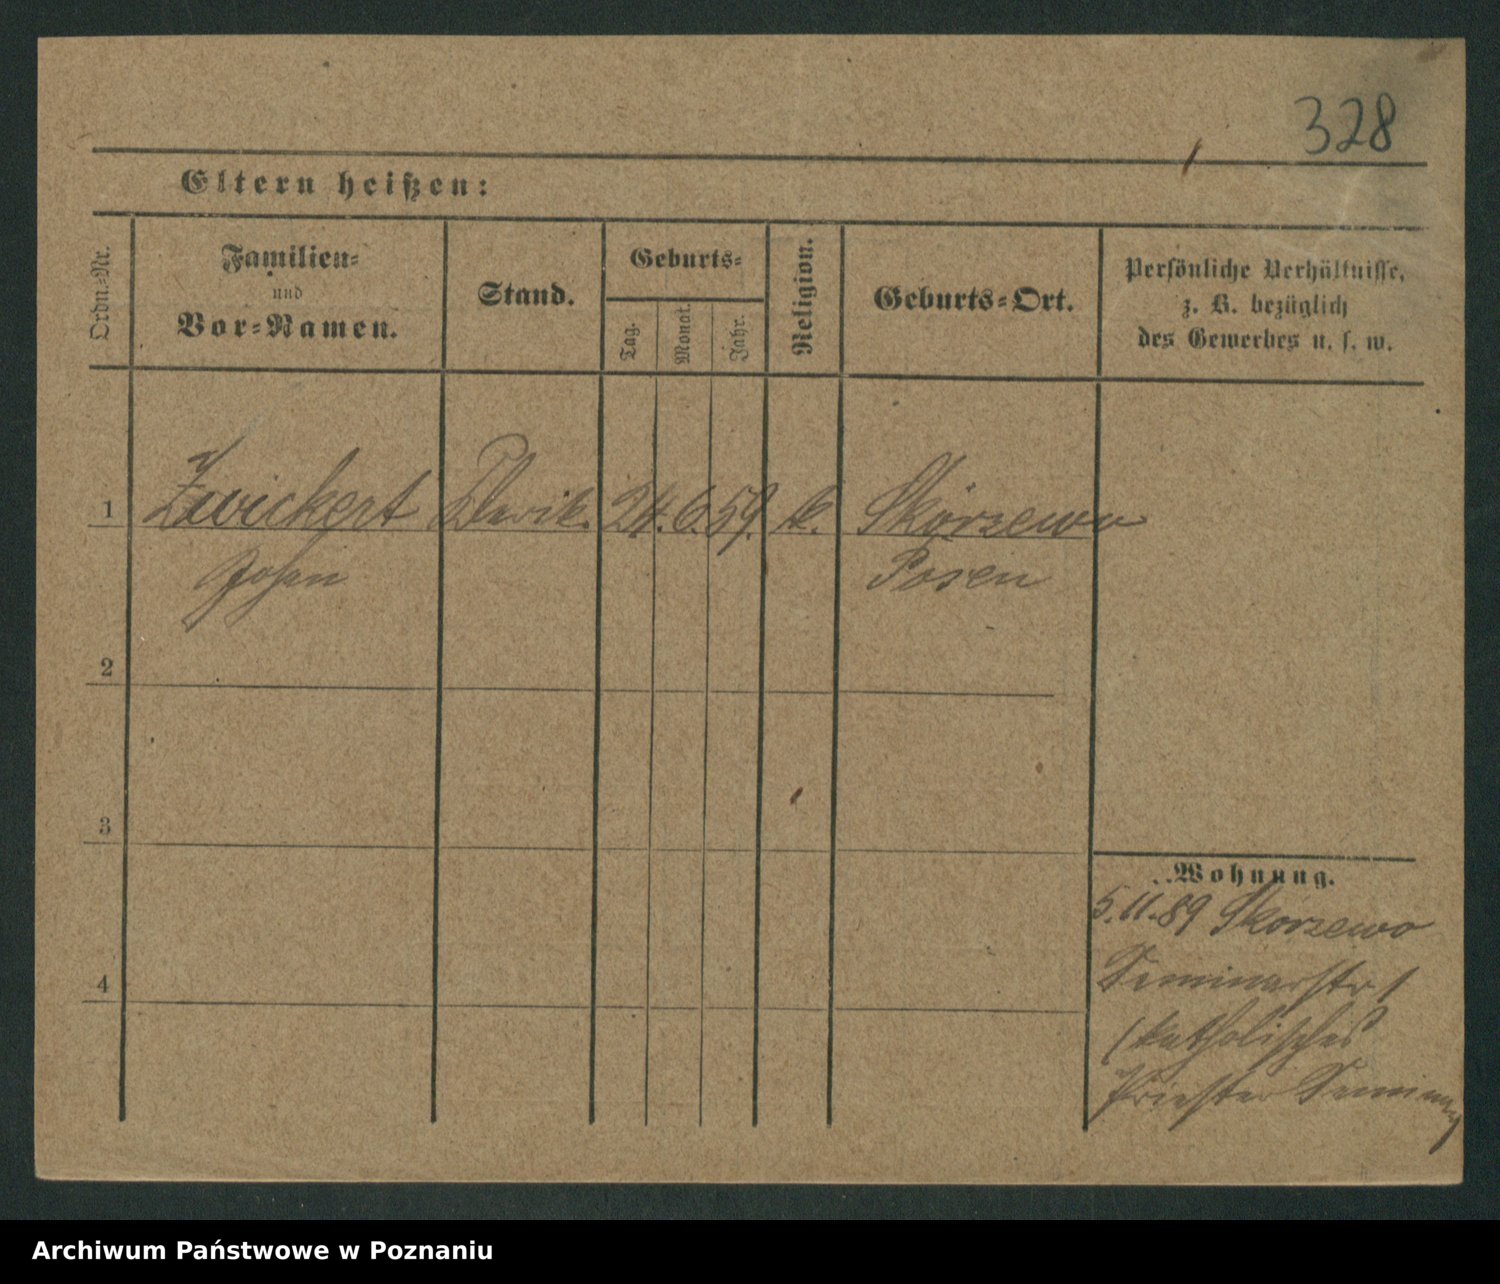 328
Eltern heißen:
Ordn.-Nr.
Familien-
und
Vor-Namen.
Stand.
Geburts-
Tag.
Monat.
Jahr.
Religion.
Geburts-Ort.
Persönliche Verhältnisse,
z. B. bezüglich
des Gewerbes u. s. w.
1 Zwickert Klerik. 24. 6. 59. k. Skórzewo
Johan Posen
2
3
Wohnung.
5.11.89 Skorzewo
4
Seminarstr 1
(katholisches
Priester
Archiwum Państwowe w Poznaniu